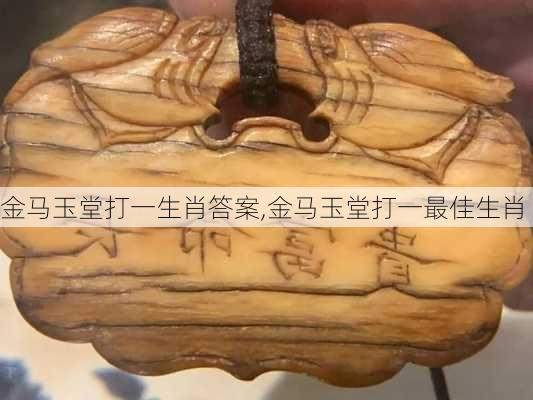 金马玉堂打一生肖答案,金马玉堂打一最佳生肖
富貴